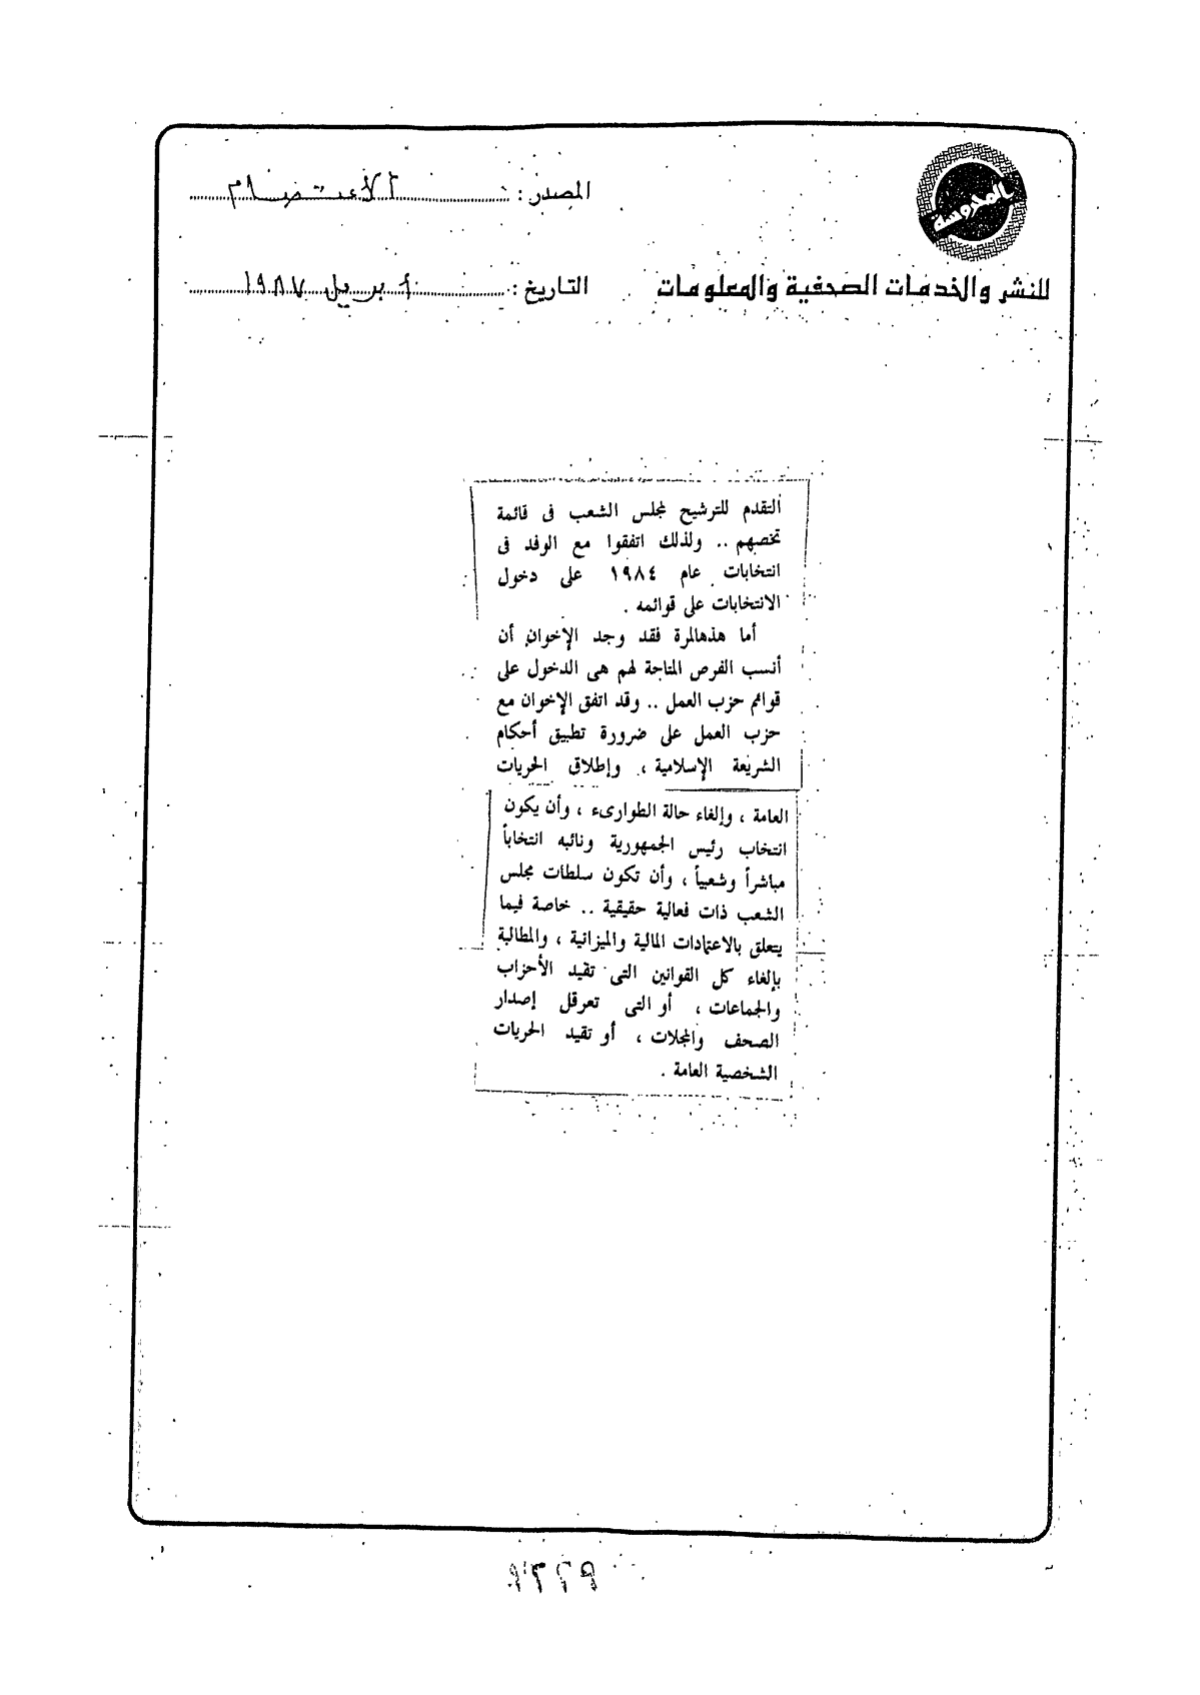 المحروسة
المصدر : الاعتصام
للنشر والخدمات الصحفية والمعلومات
التاريخ : ابريل ١٩٨٧
التقدم للترشيح لمجلس الشعب فى قائمة
تخصهم .. ولذلك اتفقوا مع الوفد فى
انتخابات عام ١٩٨٤ على دخول
الانتخابات على قوائمه .
أما هذهالمرة فقد وجد الإخوان أن
أنسب الفرص المتاحة لهم هى الدخول على
قوائم حزب العمل .. وقد اتفق الإخوان مع
حزب العمل على ضرورة تطبيق أحكام
الشريعة الإسلامية ، وإطلاق الحريات
العامة ، وإلغاء حالة الطوارىء ، وأن يكون
انتخاب رئيس الجمهورية ونائبه انتخاباً
مباشراً وشعبياً ، وأن تكون سلطات مجلس
الشعب ذات فعالية حقيقية .. خاصة فيما
يتعلق بالاعتمادات المالية والميزانية ، والمطالبة
بإلغاء كل القوانين التى تقيد الأحزاب
والجماعات ، أو التى تعرقل إصدار
الصحف والمجلات ، أو تقيد الحريات
الشخصية العامة .